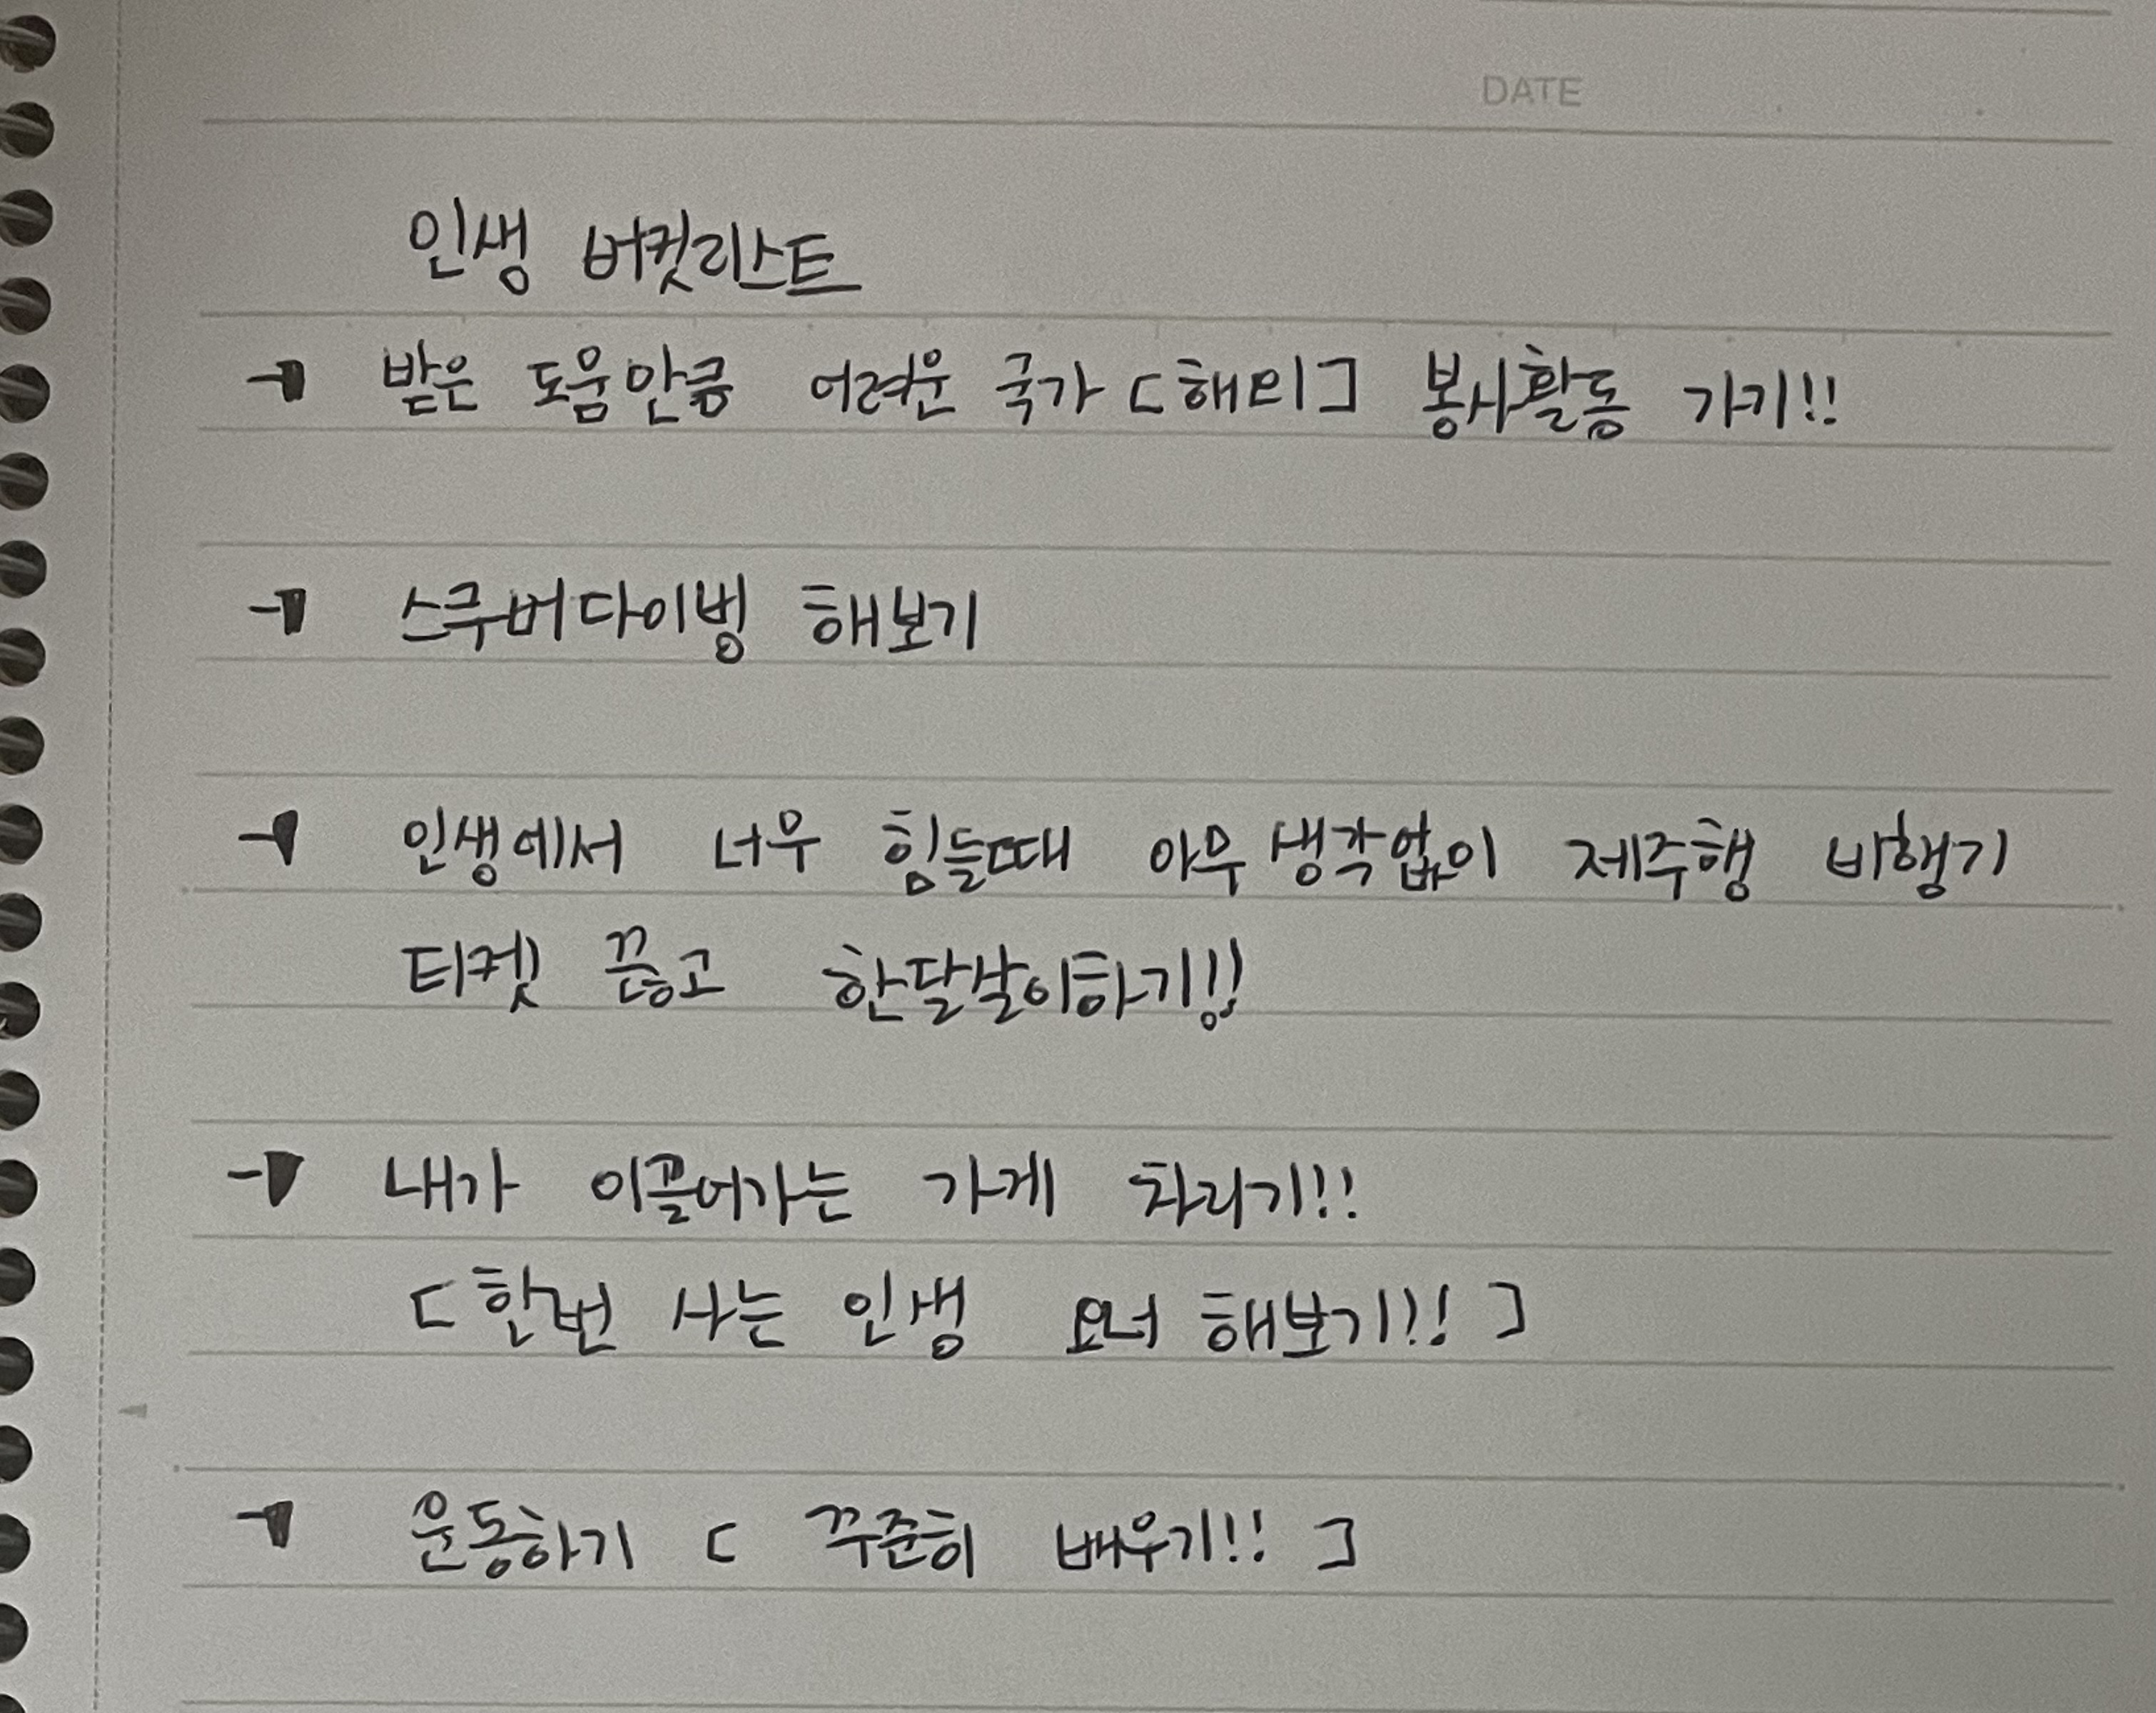 DATE
인생 버킷리스트
→ 받은 도움만큼 어려운 국가 [해외] 봉사활동 가기!!
→ 스쿠버다이빙 해보기
→ 인생에서 너무 힘들때 아무 생각없이 제주행 비행기
티켓 끊고 한달살이하기!!
→ 내가 이끌어가는 가게 차리기!!
[한번 사는 인생 오너 해보기!!]
→ 운동하기 [ 꾸준히 배우기!! ]